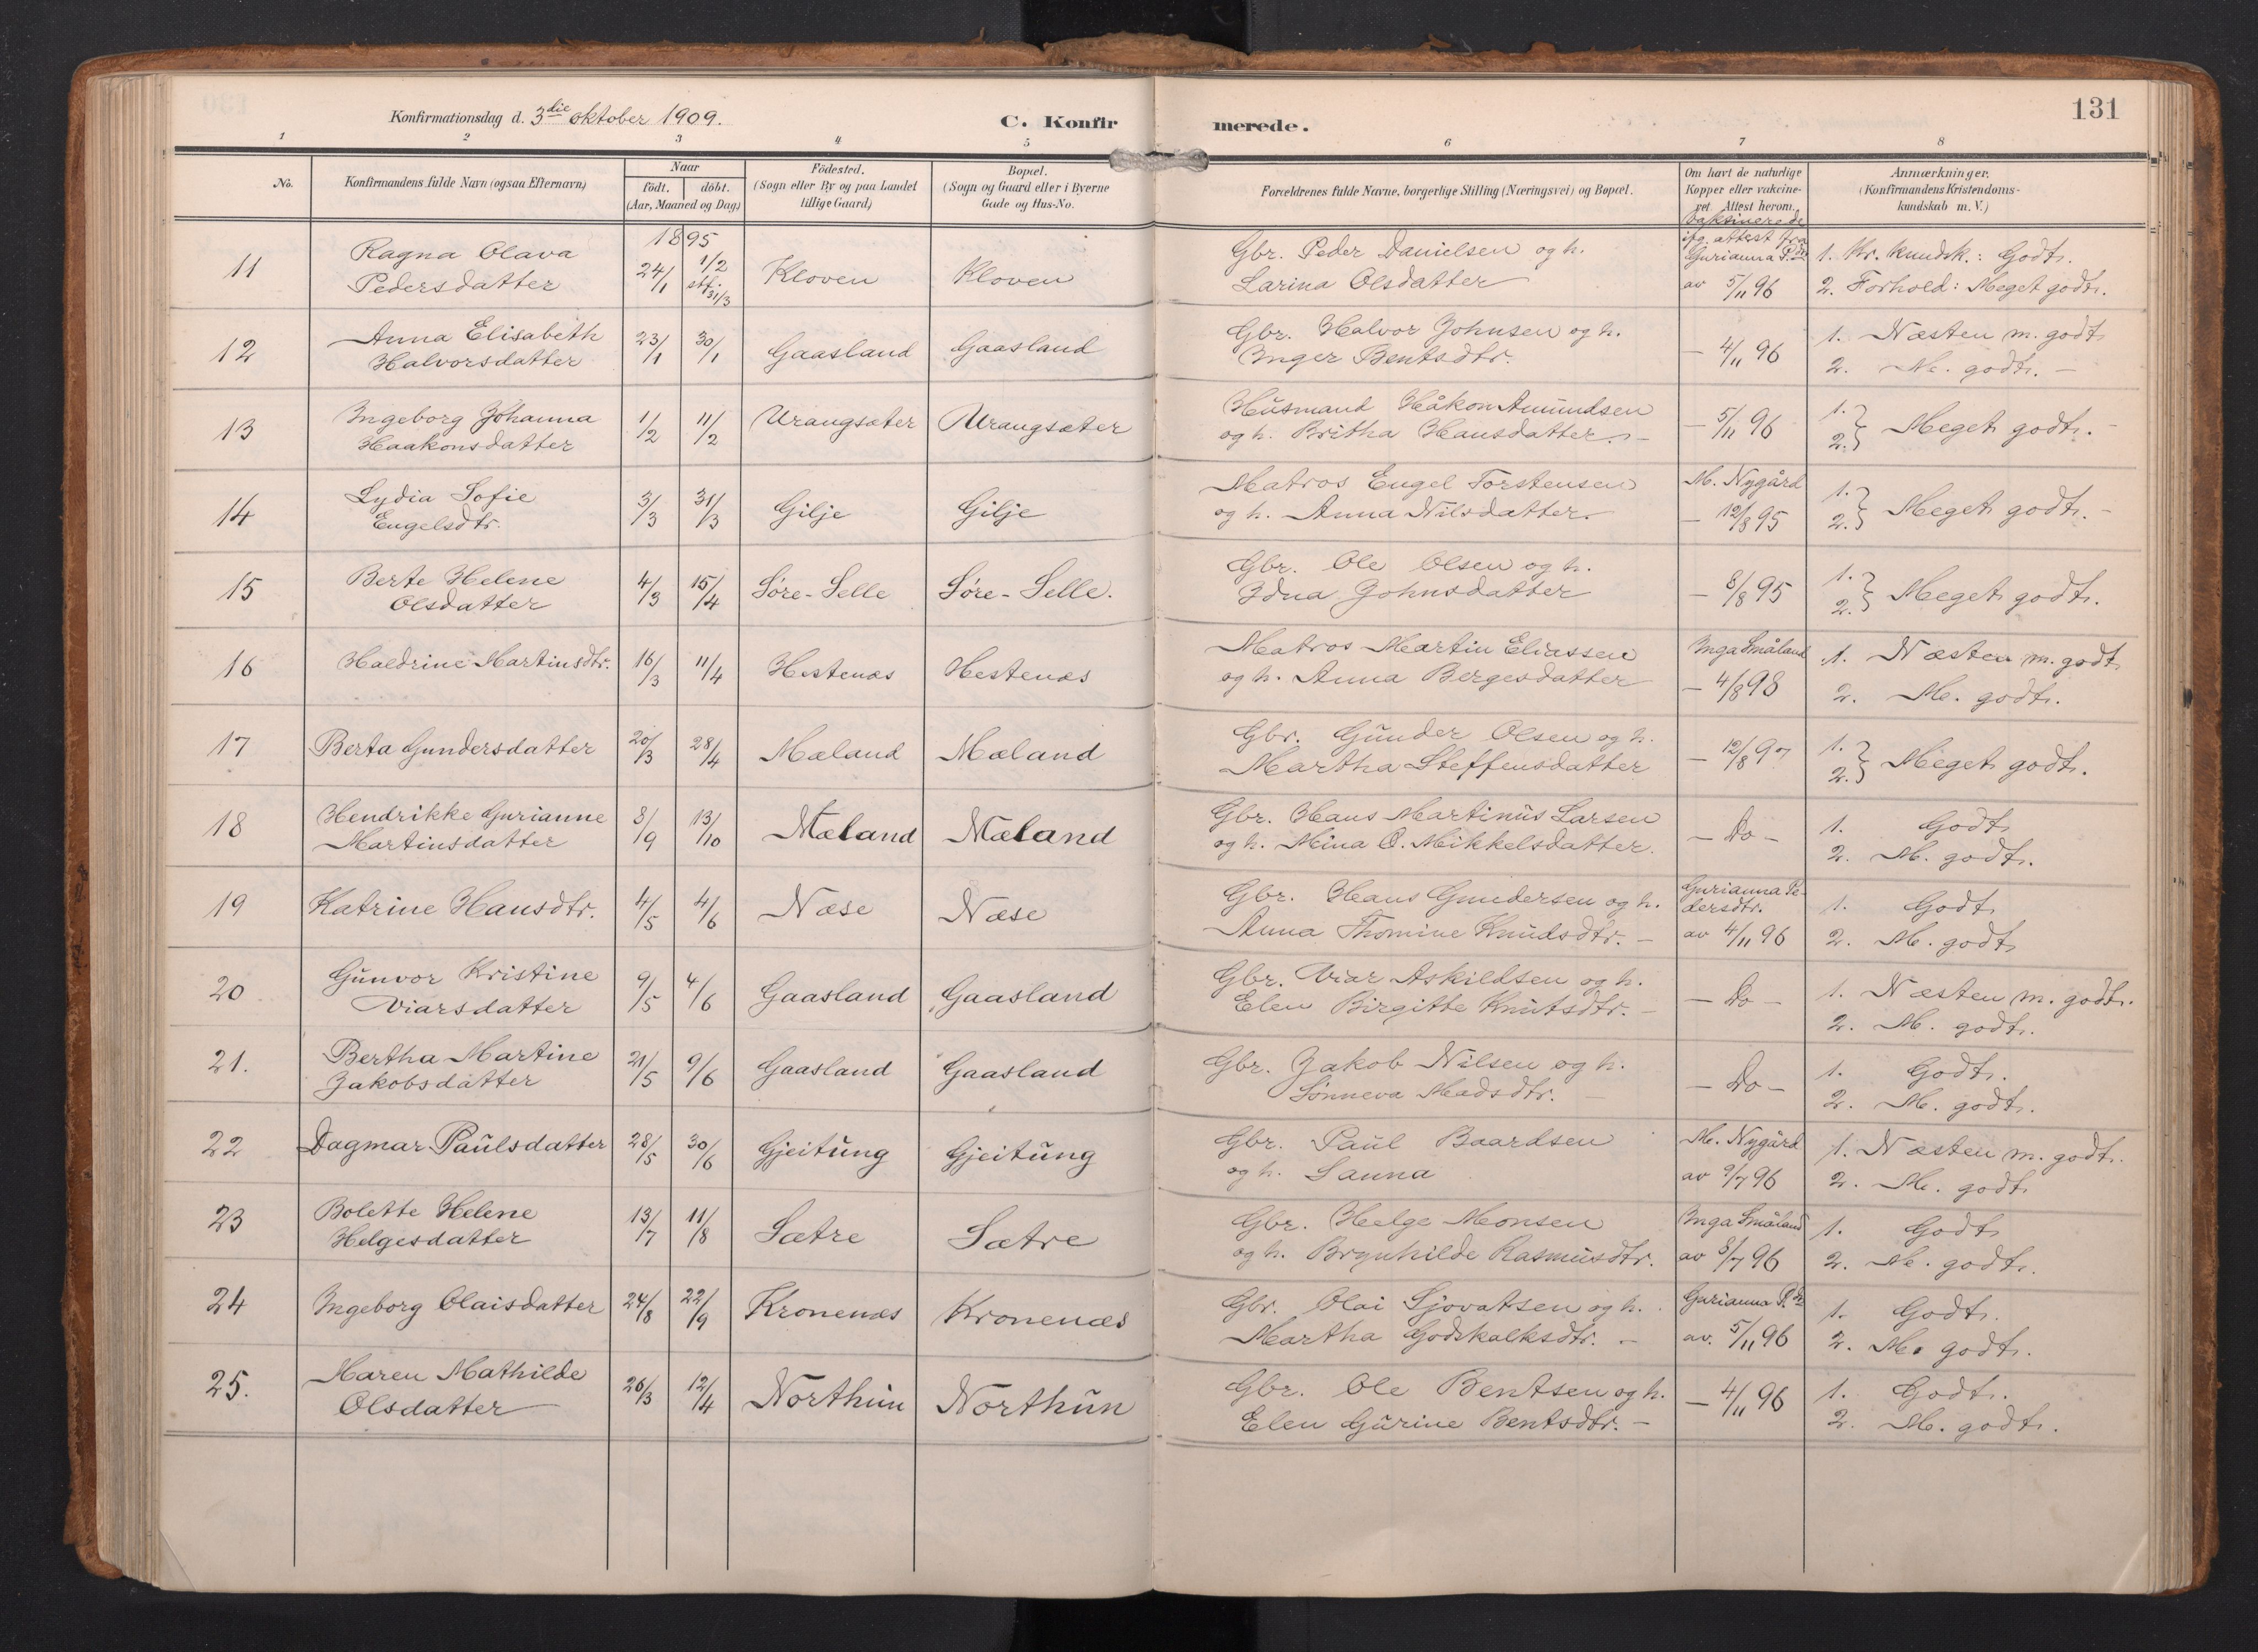 131
Konfirmationsdag d. 3die oktober 1909. C. Konfir merede.
1 2 3 4 5 6 7 8
No. Konfirmandens fulde Navn (ogsaa Efternavn) Naar födt. döbt. (Aar, Maaned og Dag) Födested. (Sogn eller By og paa Landet tillige Gaard) Bopæl. (Sogn og Gaard eller i Byerne Gade og Hus-No. Forældrenes fulde Navne, borgerlige Stilling (Næringsvei) og Bopæl. Om havt de naturlige Kopper eller vakcineret. Attest herom. Anmærkninger. (Konfirmandens Kristendomskundskab m. V.)
1895 Vaksinerede ifg. attest fra
11 Ragna Olava 24/1 1/2 Kloven Kloven Gbr. Peder Danielsen og h. Gurianna P.dtr 1. Kr. kundsk.: Godt.
Pedersdatter stf. 31/3 Larina Olsdatter av 5/11 96 2. Forhold: Meget godt.
12 Anna Elisabeth 23/1 30/1 Gaasland Gaasland Gbr. Halvor Johnsen og h. — 4/11 96 1. Næsten m. godt
Halvorsdatter Inger Bentsdtr. 2. M. godt. —
13 Ingeborg Johanna 1/2 11/2 Vrangsæter Vrangsæter Husmand Håkon Amundsen — 5/11 96 1. 2. } Meget godt. -
Haakonsdatter og h. Britha Hansdatter. -
14 Lydia Sofie 3/3 31/3 Gilje Gilje Matros Engel Torstensen M. Nygård 1. 2. } Meget godt. -
Engelsdtr. og h. Anna Nilsdatter. — 12/8 95
15 Berte Helene 4/3 15/4 Söre-Selle Söre-Selle. Gbr. Ole Olsen og h. — 8/8 95 1. 2. } Meget godt.
Olsdatter Idna Johnsdatter
16 Haldrine Martinsdtr. 16/3 11/4 Hestenæs Hestenæs Matros Martin Eliassen Inga Småland 1. Næsten m. godt
og h. Anna Bergesdatter — 4/8 98 2. M. godt.
17 Berta Gundersdatter 20/3 28/4 Mæland Mæland Gbr. Gunder Olsen og h. — 12/8 97 1. 2. } Meget godt.
Martha Steffensdatter
18 Hendrikke Gurianne 8/9 13/10 Mæland Mæland Gbr. Hans Martinus Larsen — Do — 1. Godt
Martinsdatter og h. Mina O. Mikkelsdatter. 2. M. godt.
19 Katrine Hansdtr. 4/5 4/6 Næse Næse Gbr. Hans Gundersen og h. Gurianna Pedersdtr. 1. Godt
Anna Thomine Knudsdtr. - av 4/11 96 2. M. godt
20 Gunvor Kristine 9/5 4/6 Gaasland Gaasland Gbr. Viar Askildsen og h. — Do — 1. Næsten m. godt.
Viarsdatter Elen Birgitte Knutsdtr. - 2. M. godt.
21. Bertha Martine 21/5 9/6 Gaasland Gaasland Gbr. Jakob Nilsen og h. — Do — 1. Godt.
Jakobsdatter Sönneva Madsdtr. - 2. M. godt.
22 Dagmar Paulsdatter 28/5 30/6 Gjeitung Gjeitung Gbr. Paul Baardsen M. Nygård 1. Næsten m. godt.
og h. Sanna av 9/7 96 2. M. godt
23 Bolette Helene 13/7 11/8 Sætre Sætre Gbr. Helge Monsen Inga Småland 1. Godt
Helgesdatter og h. Brynhilde Rasmusdtr. av 8/7 96 2. M. godt.
24 Ingeborg Olaisdatter 24/8 22/9 Kronenæs Kronenæs Gbr. Olai Sjovatsen og h. Gurianna P.dtr 1. Godt.
Martha Godskalksdtr. - av. 5/11 96 2. M. godt.
25. Maren Mathilde 26/3 12/4 Northun Northun Gbr. Ole Bentsen og h. — 4/11 96 1. Godt.
Olsdatter Elen Gurine Bentsdtr. - 2. M. godt.